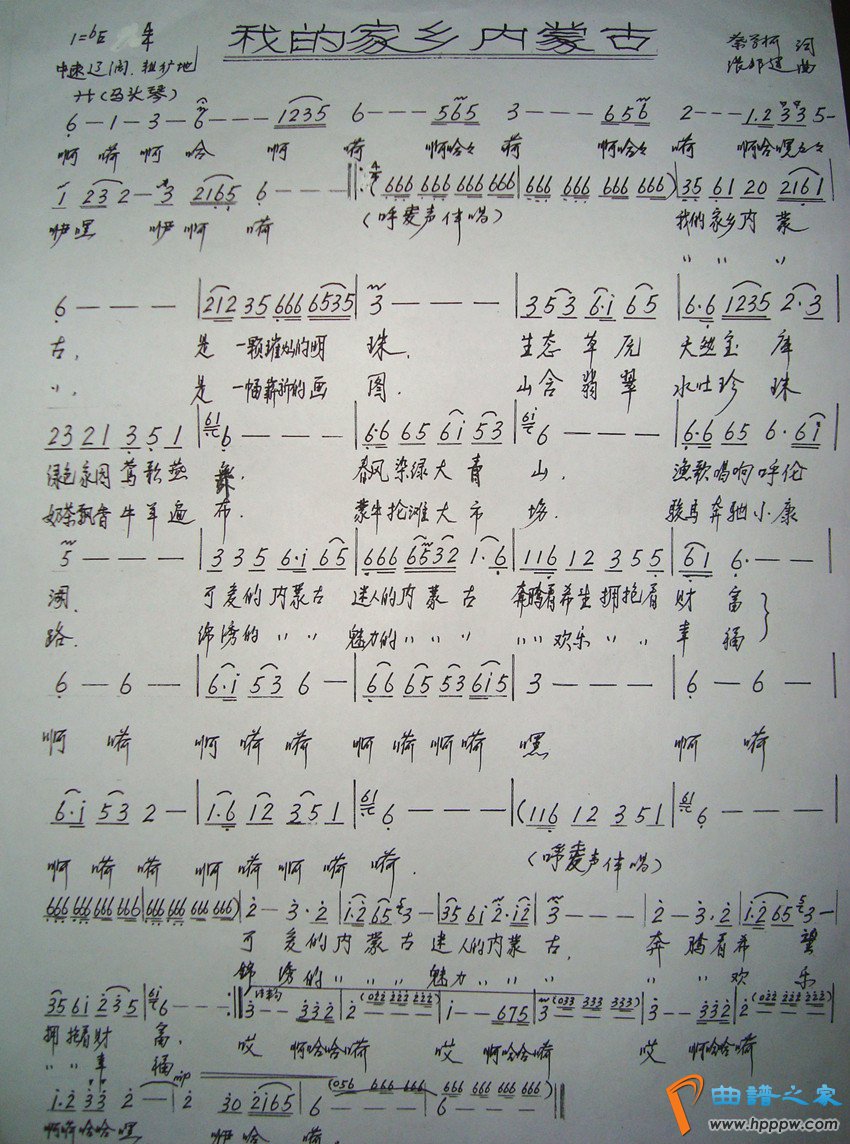 我的家乡内蒙古
1=♭E
词
曲
中速 辽阔、粗犷地
サ(马头琴)
6 - 1 - 3 - 6 - - - 1235 6 - - - 565 3 - - - 656 2 - - - 1·2 335 -
啊 嗬 啊 哈 啊 嗬 啊哈哈 嗬 啊哈哈 嗬 啊哈嘿
1 23 2 - 3 2165 6 - - ‖: 666 666 666 666 | 666 666 666 666 ) | 35 61 20 2161 |
咿嘿 咿 啊 嗬 (呼麦声伴唱) 我的家乡内蒙
〃 〃 〃
6 - - - | 212 35 666 6535 | 3 - - - | 353 6·i 65 | 6·6 1235 2·3 |
古, 是一颗璀灿的明 珠, 生态草原 天然宝库
〃, 是一幅崭新的画 图. 山含翡翠 水吐珍珠
23 21 3·5 1 | 6 - - - | 6·6 65 6i 53 | 6 - - - | 6·6 65 6·6i |
绿色家园莺歌燕 舞. 春风染绿大青 山, 渔歌唱响呼伦
奶茶飘香牛羊遍 布. 蒙牛抢滩大市 场. 骏马奔驰小康
5 - - - | 335 6·i 65 | 666 6532 1·6 | 116 12 355 | 61 6· - - |
湖, 可爱的内蒙古 迷人的内蒙古 奔腾着希望拥抱着 财富
路. 锦绣的〃〃〃 魅力的〃〃〃 〃〃欢乐〃〃 幸福
6 - 6 - | 6·i 53 6 - | 66 65 53 6i5 | 3 - - - | 6 - 6 - |
啊 嗬 啊 嗬 嗬 啊 嗬 啊 嗬 嘿 啊 嗬
6·i 53 2 - | 1·6 12 351 | 6 - - - | (116 12 351 | 6 - - - |
啊 嗬 嗬 啊 嗬 啊 嗬 嗬. (呼麦声伴唱)
666 666 666 666 | 666 666 666 666 ) | 2 - 3·2 | i·2 65 3 - | 35 6i 2·i2 | 3 - - - | 2 - 3·2 | i·2 65 3 - |
可 爱的内蒙古 迷人的内蒙古, 奔 腾着希望
锦 绣的〃〃〃 魅力〃〃〃〃 〃 〃 欢乐
35 6i 235 | 6 - - - :‖ 3 - - 332 | 2 (022 222 222) | i - - 675 | 3 (033 333 333) | 3 - - 332 | 2 (022 222 222) |
拥抱着财 富, 哎 啊哈哈嗬 哎 啊哈哈嗬 哎 啊哈哈嗬
〃〃幸 福
i·2 33 2 - | 2 30 2165 | 6 - - - (056 666 666 | 666 666 666 666 ) ‖
mp
啊嗬哈哈嘿 咿哈 嗬.
曲谱之家
www.hpppw.com